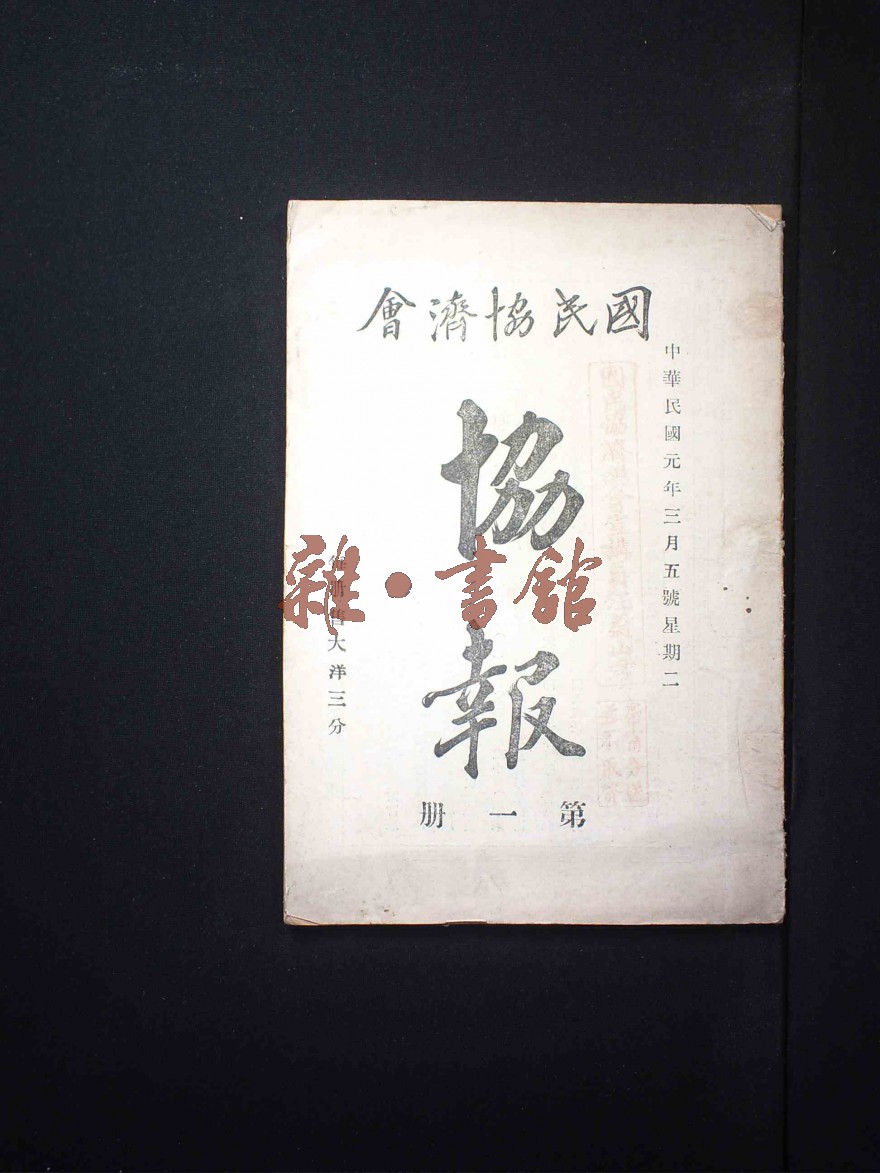 國民協濟會
中華民國元年三月五號星期二
協報
每册售大洋三分
第一册
雜·書館